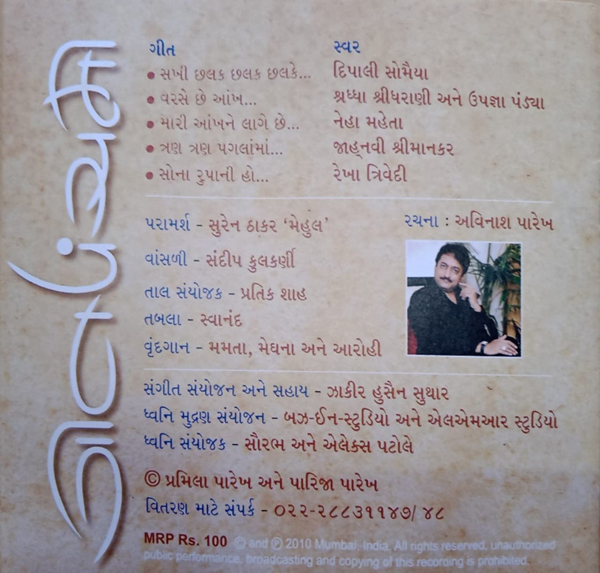 ગીતપંચમી
ગીત સ્વર
• સખી છલક છલક છલકે... દિપાલી સોમૈયા
• વરસે છે આંખ... શ્રધ્ધા શ્રીધરાણી અને ઉપજ્ઞા પંડ્યા
• મારી આંખને લાગે છે... નેહા મહેતા
• ત્રણ ત્રણ પગલાંમાં... જાહ્નવી શ્રીમાનકર
• સોના રુપાની હો... રેખા ત્રિવેદી
પરામર્શ - સુરેન ઠાકર ‘મેહુલ’ રચના : અવિનાશ પારેખ
વાંસળી - સંદીપ કુલકર્ણી
તાલ સંયોજક - પ્રતિક શાહ
તબલા - સ્વાનંદ
વૃંદગાન - મમતા, મેઘના અને આરોહી
સંગીત સંયોજન અને સહાય - ઝાકીર હુસૈન સુથાર
ધ્વનિ મુદ્રણ સંયોજન - બઝ-ઈન-સ્ટુડિયો અને એલએમઆર સ્ટુડિયો
ધ્વનિ સંયોજક - સૌરભ અને એલેક્સ પટોલે
© પ્રમિલા પારેખ અને પારિજા પારેખ
વિતરણ માટે સંપર્ક - ૦૨૨-૨૮૮૩૧૧૪૭/ ૪૮
MRP Rs. 100 © and ℗ 2010 Mumbai, India. All rights reserved, unauthorized
public performance, broadcasting and copying of this recording is prohibited.